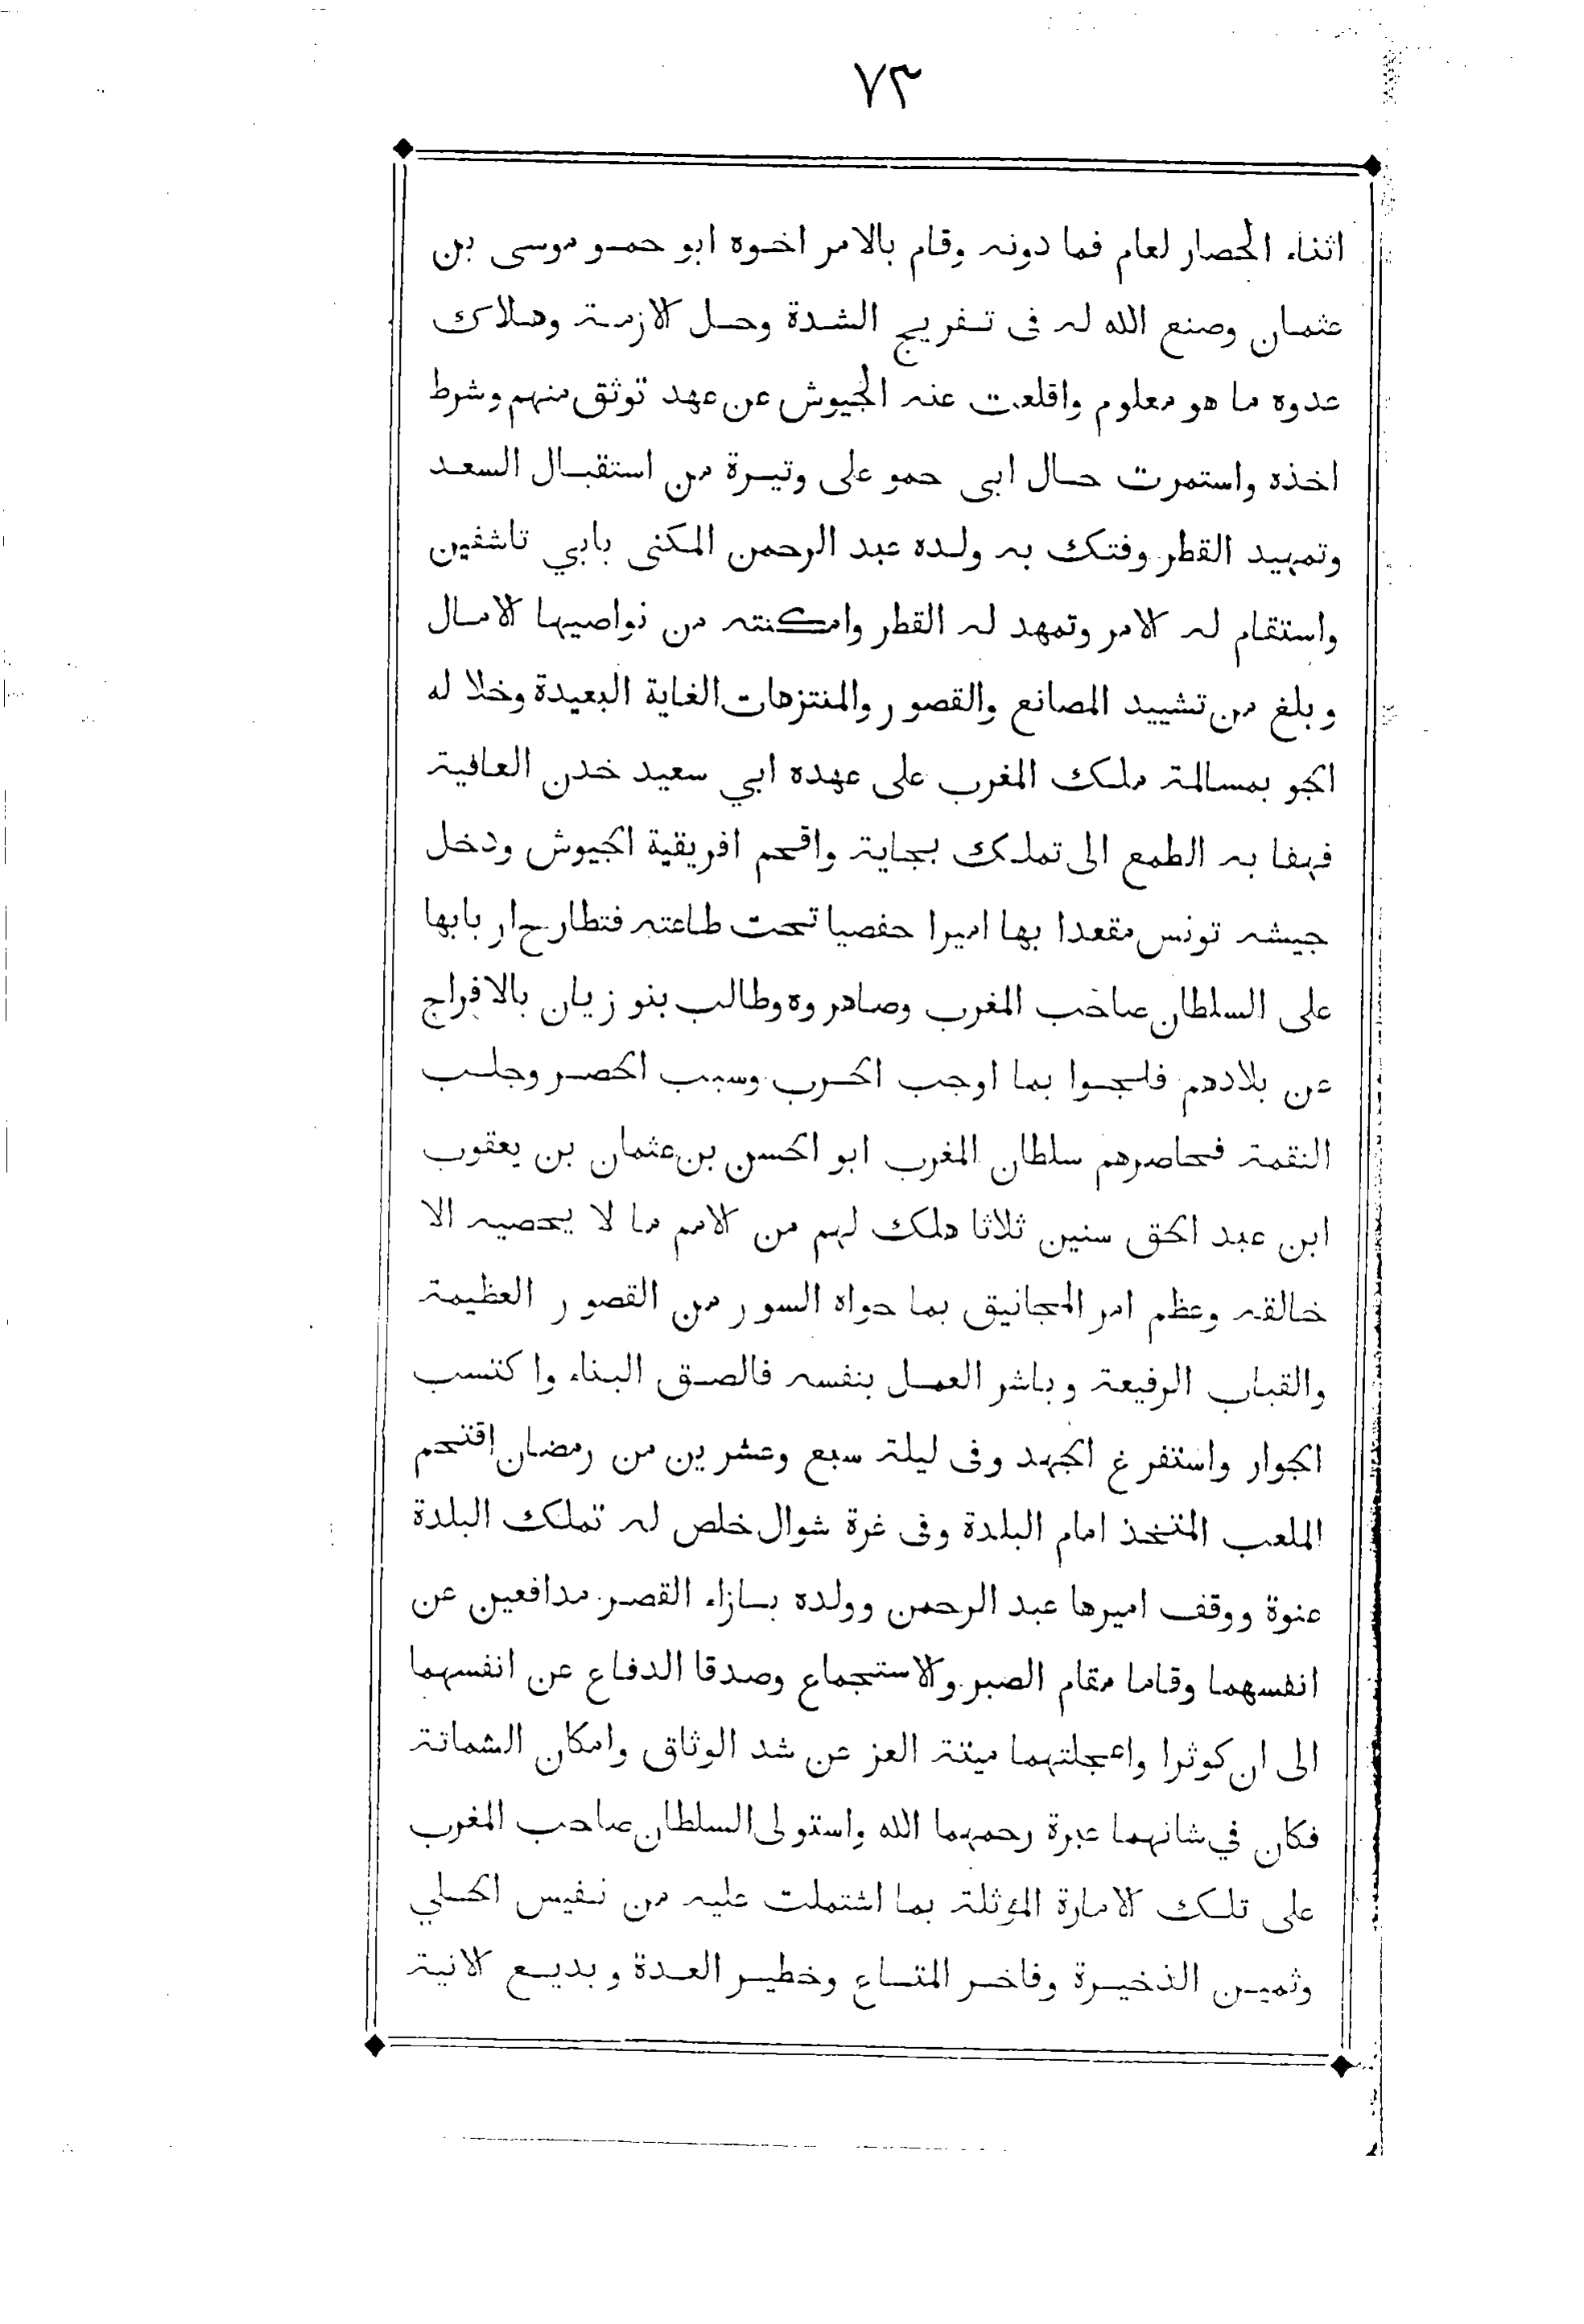 ٧٣
اثناء الحصار لعام فما دونه وقام بالامر اخوه ابو حمو موسى بن
عثمان وصنع الله له فى تفريج الشدة وحل الازمة وهلاك
عدوه ما هو معلوم واقلعت عنه الجيوش عن عهد توثق منهم وشرط
اخذه واستمرت حال ابى حمو على وتيرة من استقبال السعد
وتمهيد القطر وفتك به ولده عبد الرحمن المكنى بابي تاشفين
واستقام له الامر وتمهد له القطر وامكنته من نواصيها الامال
وبلغ من تشييد المصانع والقصور والمنتزهات الغاية البعيدة وخلا له
الجو بمسالمة ملك المغرب على عهده ابي سعيد خدن العافية
فهفا به الطمع الى تملك بجاية واقحم افريقية الجيوش ودخل
جيشه تونس مقعدا بها اميرا حفصيا تحت طاعته فتطارح اربابها
على السلطان صاحب المغرب وصاهروه وطالب بنو زيان بالافراج
عن بلادهم فلجوا بما اوجب الحرب وسبب الحصر وجلب
النقمة فحاصرهم سلطان المغرب ابو الحسن بن عثمان بن يعقوب
ابن عبد الحق سنين ثلاثا هلك لهم من الامم ما لا يحصيه الا
خالقه وعظم امر المجانيق بما حواه السور من القصور العظيمة
والقباب الرفيعة وباشر العمل بنفسه فالصق البناء واكتسب
الجوار واستفرغ الجهد وفى ليلة سبع وعشرين من رمضان اقتحم
الملعب المتخذ امام البلدة وفى غرة شوال خلص له تملك البلدة
عنوة ووقف اميرها عبد الرحمن وولده بازاء القصر مدافعين عن
انفسهما وقاما مقام الصبر والاستجماع وصدقا الدفاع عن انفسهما
الى ان كوثرا واعجلتهما ميتة العز عن شد الوثاق وامكان الشماتة
فكان في شانهما عبرة رحمهما الله واستولى السلطان صاحب المغرب
على تلك الامارة المؤثلة بما اشتملت عليه من نفيس الحلي
وثمين الذخيرة وفاخر المتاع وخطير العدة وبديع الانية